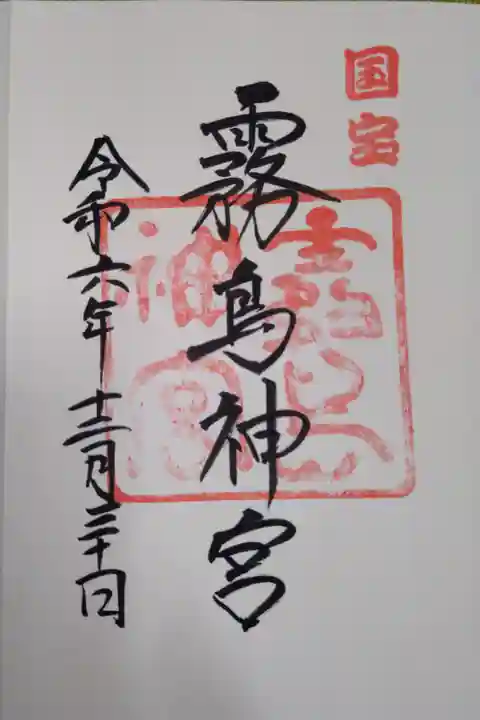 国宝
霧島神宮
令和六年十二月三十日